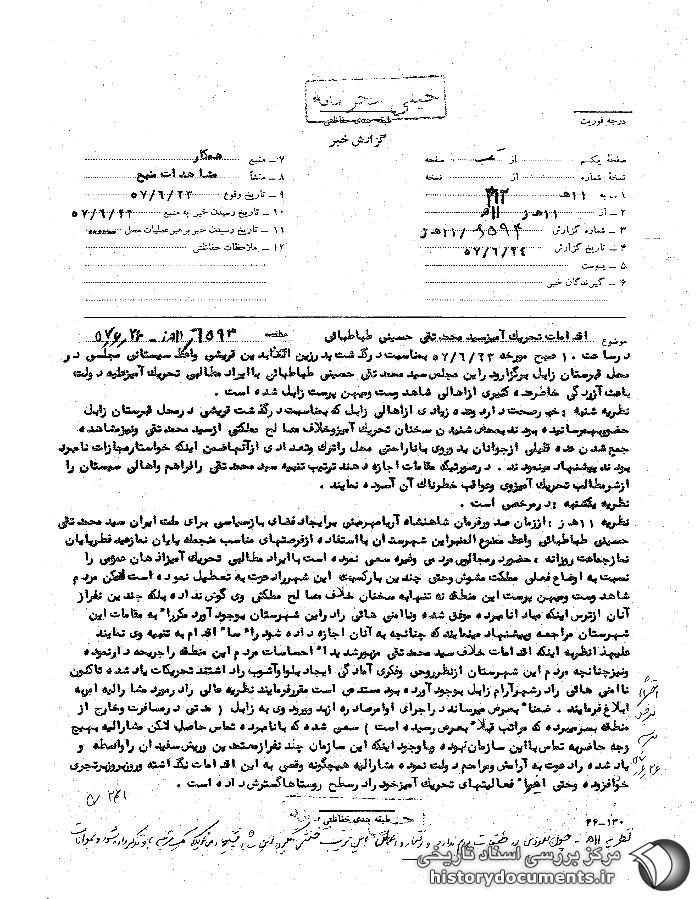 خیلی محرمانه
طبقه بندی حفاظتی
درجه فوریت
گزارش خبر
صفحه یکم از صفحه
نسخه شماره از نسخه
۱ ـ به ۱۱هـ ۳۱۲
۲ ـ از ۱۱هـ ز
۳ ـ شماره گزارش ۶۵۹۴/۱۱هـ ز
۴ ـ تاریخ گزارش ۵۷/۶/۲۴
۵ ـ پیوست
۶ ـ گیرندگان خبر
۷ ـ منبع همکار
۸ ـ منشأ مشاهدات منبع
۹ ـ تاریخ وقوع ۵۷/۶/۲۳
۱۰ ـ تاریخ رسیدن خبر به منبع ۵۷/۶/۲۳
۱۱ ـ تاریخ رسیدن خبر برهبر عملیات محل
۱۲ ـ ملاحظات حفاظتی
موضوع اقدامات تحریک آمیز سید محمد تقی حسینی طباطبائی
در ساعت ۱۰ صبح مورخه ۵۷/۶/۲۳ بمناسبت درگذشت بدرزین العابدین قریشی واعظ سیستانی مجلسی در
محل قبرستان زابل برگزار و در این مجلس سید محمد تقی حسینی طباطبائی با ایراد مطالبی تحریک آمیز علیه دولت
باعث آزردگی خاطر عده کثیری از اهالی شاهدوست و میهن پرست زابل شده است .
نظریه شنبه : خبر صحت دارد و عده زیادی از اهالی زابل که بمناسبت درگذشت قریشی در محل قبرستان زابل
حضور بهم رسانیده بودند بمحض شنیدن سخنان تحریک آمیز و خلاف مصالح مملکتی از سید محمد تقی و نیز مشاهده
جمع شدن عده قلیلی از جوانان بدور وی با ناراحتی محل را ترک و تعدادی از آنها ضمن اینکه خواستار مجازات نامبرده
بودند پیشنهاد مینمودند . در صورتیکه مقامات اجازه دهند ترتیب تنبیه سید محمد تقی را فراهم و اهالی سیستان را
از شر مطالب تحریک آمیز وی و عواقب خطرناک آن آسوده نمایند .
نظریه یکشنبه : در مرخصی است .
نظریه ۱۱هـ ز : از زمان صدور فرمان شاهنشاه آریامهر مبنی بر ایجاد فضای باز سیاسی برای ملت ایران سید محمد تقی
حسینی طباطبائی واعظ ممنوع المنبر این شهرستان با استفاده از فرصتهای مناسب منجمله پایان نمایان
نماز جماعت روزانه ، حضور در مجالس مردمی و غیره سعی نموده است با ایراد مطالبی تحریک آمیز اذهان عمومی را
نسبت به اوضاع فعلی مملکت مشوش و حتی چندین بار کسبه این شهر را دعوت به تعطیل نموده است لکن مردم
شاهدوست و میهن پرست این منطقه نه تنها به سخنان خلاف مصالح مملکتی وی گوش نداده بلکه چندین نفر از
آنان از ترس اینکه مبادا نامبرده موفق شده و ناامنی هائی را در این شهرستان بوجود آورد مکررا" به مقامات این
شهرستان مراجعه و پیشنهاد مینمایند که چنانچه به آنان اجازه داده شود راسا" اقدام به تنبیه وی نمایند
علیهذا نظر به اینکه اقدامات خلاف سید محمد تقی مزبور شدیدا" احساسات مردم این منطقه را جریحه دار نموده
و نیز چنانچه مردم این شهرستان از نظر روحی و فکری آمادگی ایجاد بلوا و آشوب را داشتند تحریکات یاد شده تاکنون
ناامنی هائی را در شهر آرام زابل بوجود آورده بود مستدعی است مقرر فرمایند نظریه عالی را در مورد مشارالیه اسرع
ابلاغ فرمایند . ضمنا" بعرض میرساند در اجرای اوامر صادره از بدو ورود وی به زابل ( مدتی در مسافرت و خارج از
منطقه بسر میبرده که مراتب قبلا" بعرض رسیده است ) سعی شده که با نامبرده تماس حاصل لکن مشارالیه بهیچ
وجه حاضر به تماس با این سازمان نبوده و با وجود اینکه این سازمان چند نفر از معتمدین و ریش سفیدان را واسطه و
یاد شده را دعوت به آرامش و مراحم دولت نموده مشارالیه هیچگونه وقعی به این اقدامات نگذاشته و روز بروز بر تجری
خود افزوده و حتی اخیرا" فعالیتهای تحریک آمیز خود را در سطح روستاها گسترش داده است .
طبقه بندی حفاظتی
۴۶-۱۳۰
مرکز بررسی اسناد تاریخی
historydocuments.ir